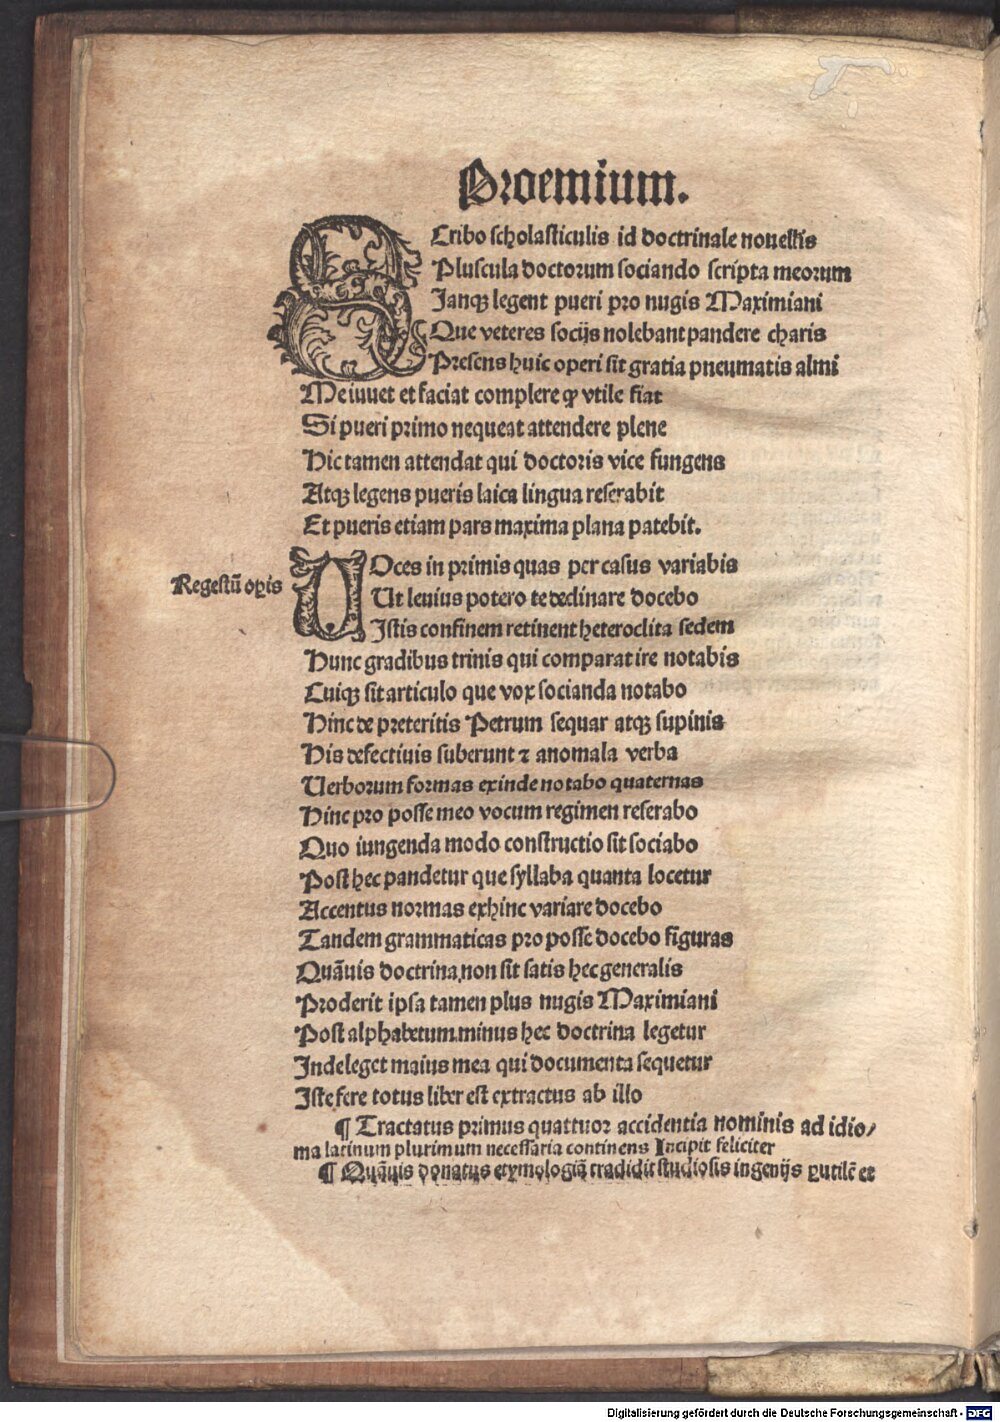 Proemium.
SCribo scholasticulis id doctrinale nouellis
Pluscula doctorum sociando scripta meorum
Janqꝫ legent pueri pro nugis Maximiani
Que veteres socijs nolebant pandere charis
Presens huic operi sit gratia pneumatis almi
Me iuuet et faciat complere ꝙ vtile fiat
Si pueri primo nequeat attendere plene
Hic tamen attendat qui doctoris vice fungens
Atqꝫ legens pueris laica lingua reserabit
Et pueris etiam pars maxima plana patebit.
Regestū oꝑis
UOces in primis quas per casus variabis
Ut leuius potero te declinare docebo
Istis confinem retinent heteroclita sedem
Hunc gradibus trinis qui comparat ire notabis
Cuiqꝫ sit articulo que vox socianda notabo
Hinc de preteritis Petrum sequar atqꝫ supinis
His defectiuis suberunt ⁊ anomala verba
Uerborum formas exinde notabo quaternas
Hinc pro posse meo vocum regimen reserabo
Quo iungenda modo constructio sit sociabo
Post hec pandetur que syllaba quanta locetur
Accentus normas exhinc variare docebo
Tandem grammaticas pro posse docebo figuras
Quāuis doctrina non sit satis hec generalis
Proderit ipsa tamen plus nugis Maximiani
Post alphabetum minus hec doctrina legetur
Inde leget maius mea qui documenta sequetur
Iste fere totus liber est extractus ab illo
¶ Tractatus primus quattuor accidentia nominis ad idio/
ma latinum plurimum necessaria continens Incipit feliciter
¶ Quāuis donatus etymologiā tradidit studiosis ingenijs ꝑutilē et
Digitalisierung gefördert durch die Deutsche Forschungsgemeinschaft - DFG